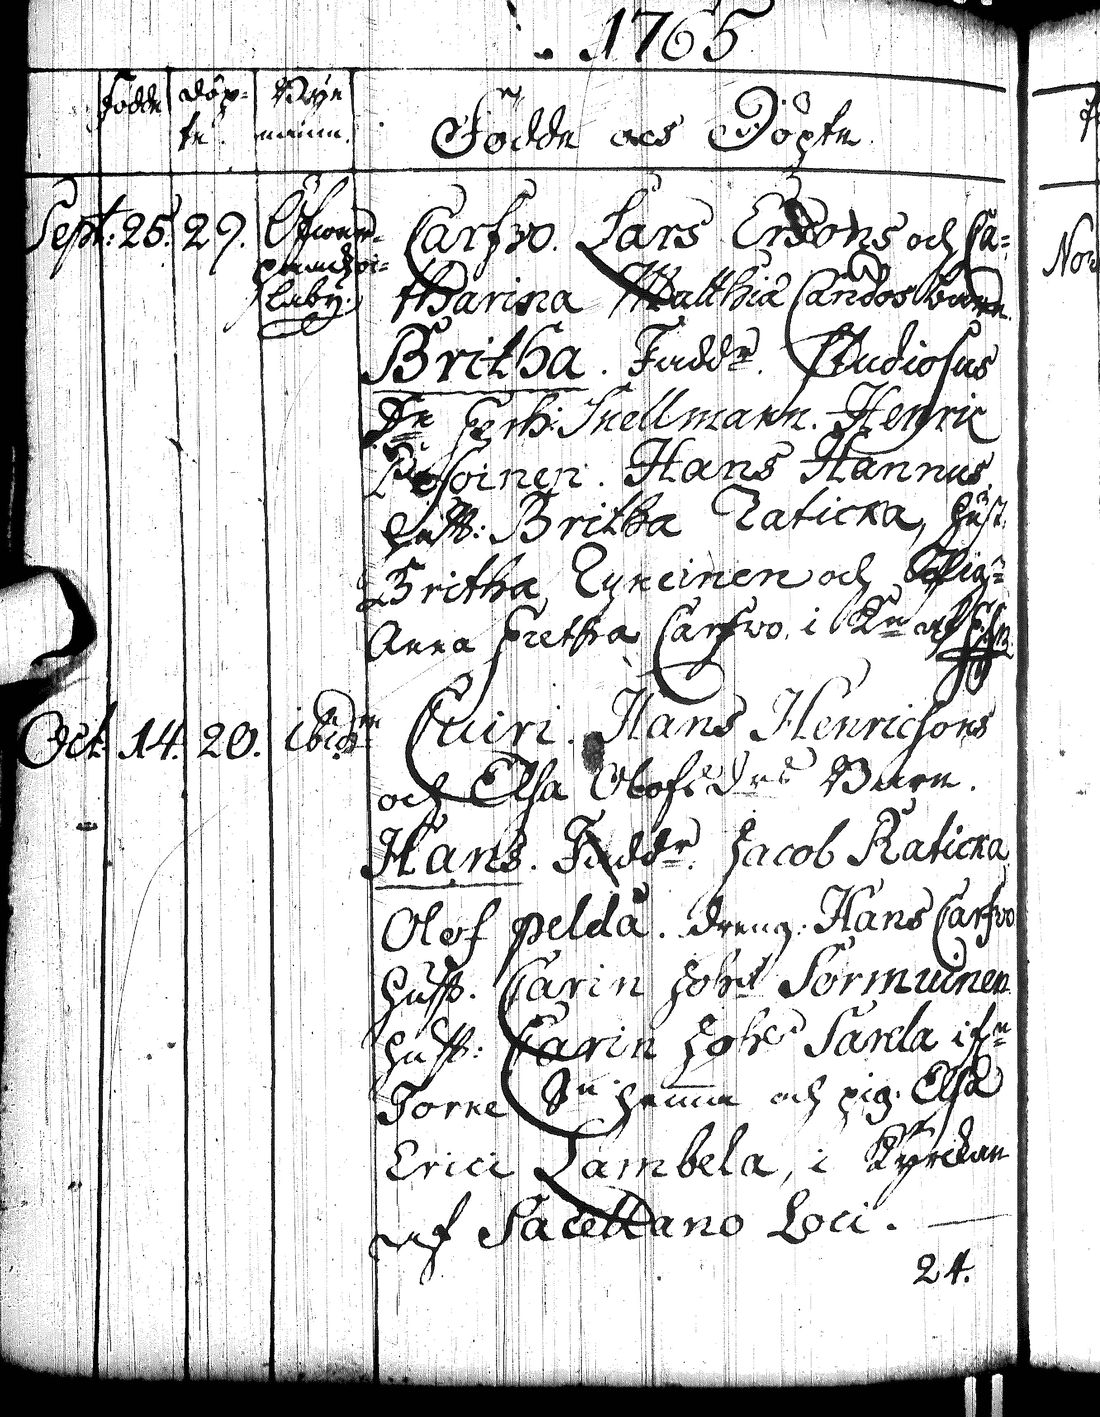 1765
Födde
döp-
te.
Bÿe
namn.
Födde ocs Döpte.
Sept: 25. 29.
Öfwer-
laby.
Carfvo. Lars Ersons och Ca-
tharina Matthiæ Candos barn.
Britha. Faddr. Studiosus
Dn Joh: Snellmann. Henric
Posoinen. Hans Hannus
hust: Britha Raticka, hust.
Britha Ryneinen och Pig:
Anna Gretha Carfvo. i Kn af
Oct. 14. 20. ibidm
Cuiri. Hans Henricsons
och Elsa Olofsdrs Barn.
Hans. Faddr. Jacob Raticka
Olof pelda. dreng. Hans Carfvo
hust. Carin Johs Sormuinen
hust: Carin Johs Sarela
Torne Sn hemma och pig. Elsa
Erici Lambela, i Kyrckan
af Sacellano Loci.
24.